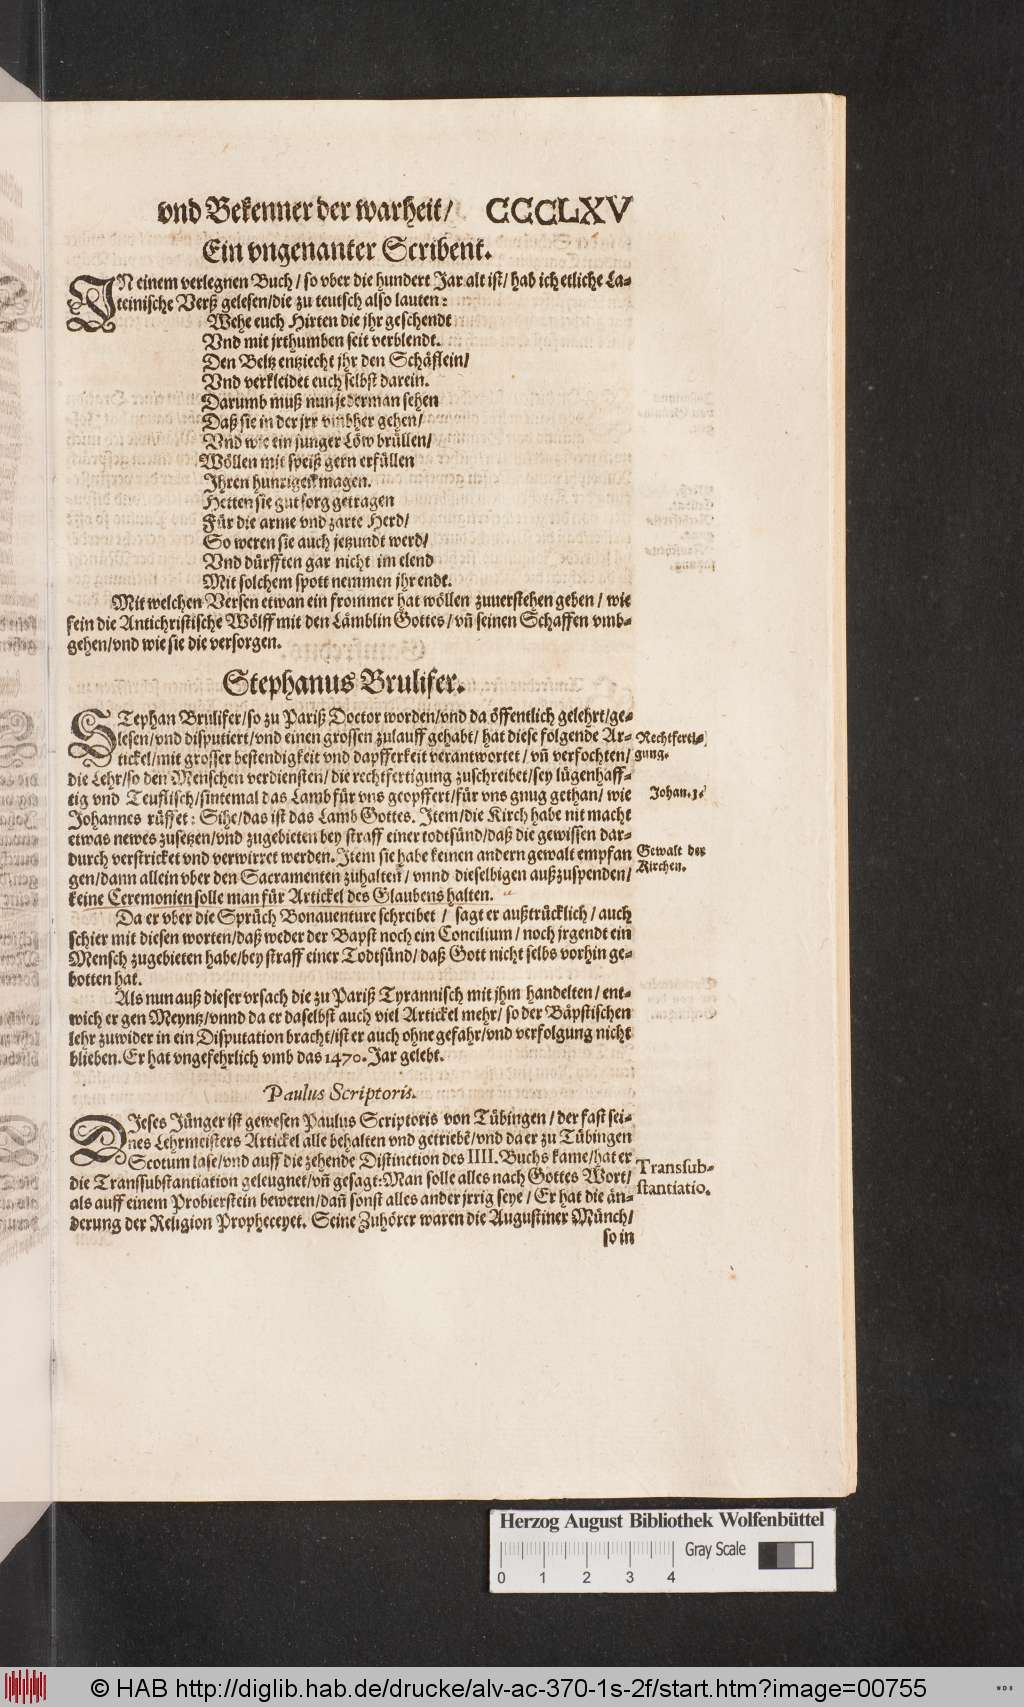 vnd Bekenner der warheit/ CCCCLXV
Ein vngenanter Scribent.
IN einem verlegnen Buch/ so vber die hundert Jar alt ist/ hab ich etliche La-
teinische Verß gelesen/die zu teutsch also lauten:
Wehe euch Hirten die jhr geschendt
Vnd mit jrthumben seit verblendt.
Den Beltz entziecht jhr den Schäflein/
Vnd verkleidet euch selbst darein.
Darumb muß nun jederman sehen
Daß sie in der jrr vmbher gehen/
Vnd wie ein junger Löw brüllen/
Wöllen mit speiß gern erfüllen
Jhren hungerigen magen.
Hetten sie gut sorg getragen
Für die arme vnd zarte Herd/
So weren sie auch jetzundt werd/
Vnd dürfften gar nicht im elend
Mit solchem spott nemmen jhr endt.
Mit welchen Versen etwan ein frommer hat wöllen zuuerstehen geben/ wie
fein die Antichristische Wölff mit den Lämblin Gottes/ vñ seinen Schaffen vmb-
gehen/vnd wie sie die versorgen.
Stephanus Brulifer.
STephan Brulifer/so zu Pariß Doctor worden/vnd da öffentlich gelehrt/ge-
lesen/vnd disputiert/vnd einen grossen zulauff gehabt/ hat diese folgende Ar-
tickel/mit grosser bestendigkeit vnd dapfferkeit verantwortet/ vñ verfochten/
Rechtferti-
gung.
die Lehr/so den Menschen verdiensten/ die rechtfertigung zuschreibet/sey lügenhaff-
tig vnd Teuflisch/sintemal das Lamb für vns geopffert/für vns gnug gethan/ wie
Johan. 1.
Johannes rüffet: Sihe/das ist das Lamb Gottes. Item/die Kirch habe nit macht
etwas newes zusetzen/vnd zugebieten bey straff einer todtsünd/daß die gewissen dar-
durch verstricket vnd verwirret werden. Item sie habe keinen andern gewalt empfan
Gewalt der
Kirchen.
gen/dann allein vber den Sacramenten zuhalten/ vnnd dieselbigen außzuspenden/
keine Ceremonien solle man für Artickel des Glaubens halten.
Da er vber die Sprüch Bonauenture schreibet/ sagt er außtrücklich/ auch
schier mit diesen worten/daß weder der Bapst noch ein Concilium/ noch jrgendt ein
Mensch zugebieten habe/bey straff einer Todtsünd/ daß Gott nicht selbs vorhin ge-
botten hat.
Als nun auß dieser vrsach die zu Pariß Tyrannisch mit jhm handelten/ ent-
wich er gen Meyntz/vnnd da er daselbst auch viel Artickel mehr/ so der Bäpstischen
lehr zuwider in ein Disputation bracht/ist er auch ohne gefahr/vnd verfolgung nicht
blieben. Er hat vngefehrlich vmb das 1470. Jar gelebt.
Paulus Scriptoris.
DIeses Jünger ist gewesen Paulus Scriptoris von Tübingen/ der fast sei-
nes Lehrmeisters Artickel alle behalten vnd getriebē/vnd da er zu Tübingen
Scotum lase/vnd auff die zehende Distinction des IIII. Buchs kame/hat er
Transsub-
stantiatio.
die Transsubstantiation geleugnet/vñ gesagt: Man solle alles nach Gottes Wort/
als auff einem Probierstein beweren/dañ sonst alles ander jrrig seye/ Er hat die än-
derung der Religion Propheceyet. Seine Zuhörer waren die Augustiner Münch/
so in
Herzog August Bibliothek Wolfenbüttel
Gray Scale
0 1 2 3 4
© HAB http://diglib.hab.de/drucke/alv-ac-370-1s-2f/start.htm?image=00755